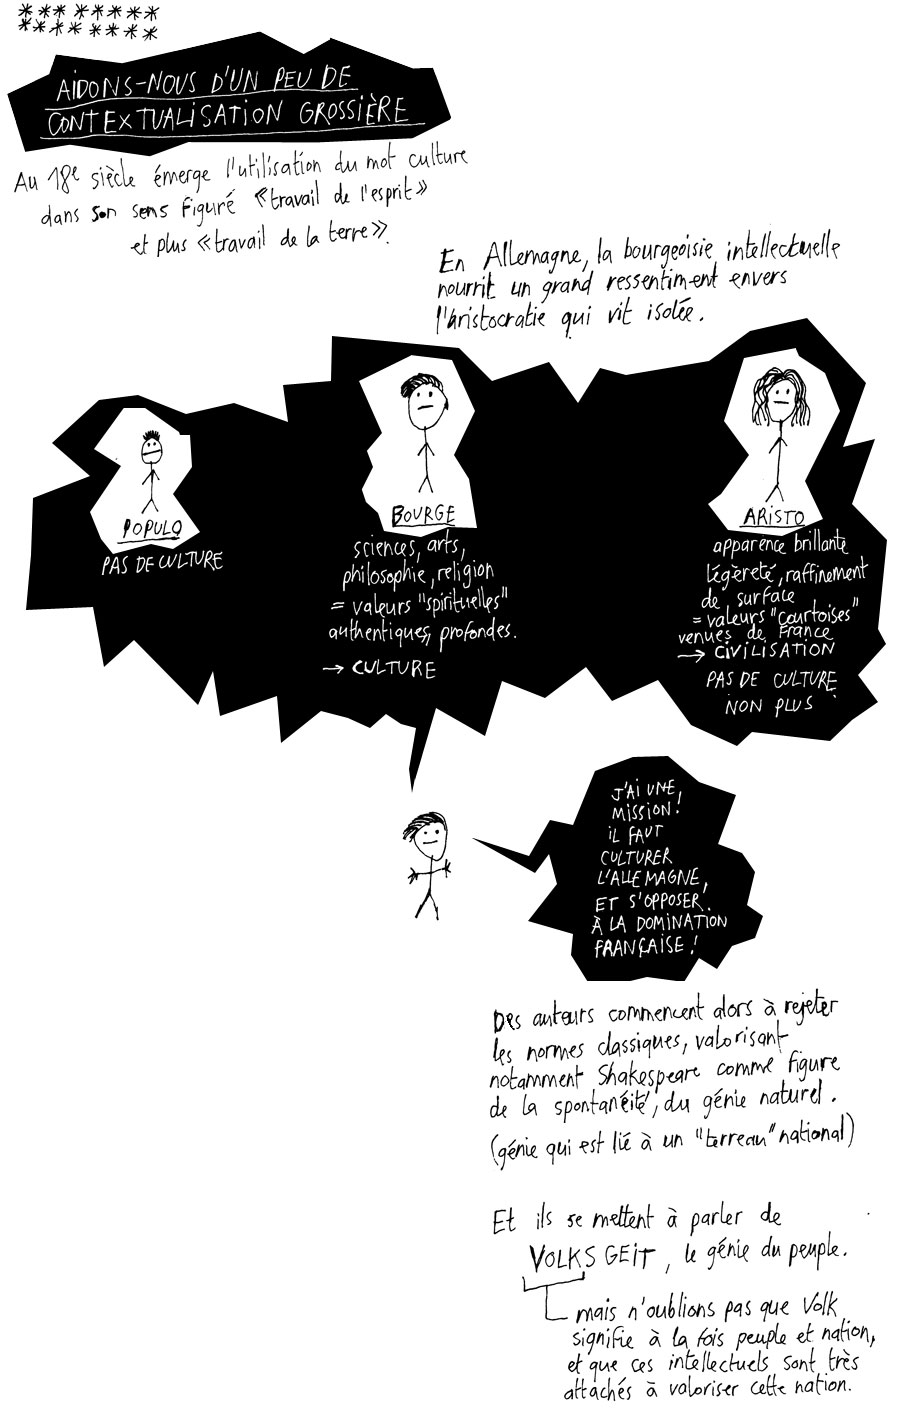 AIDONS-NOUS D'UN PEU DE
CONTEXTUALISATION GROSSIÈRE
Au 18e siècle émerge l'utilisation du mot culture
dans son sens figuré «travail de l'esprit»
et plus «travail de la terre».
En Allemagne, la bourgeoisie intellectuelle
nourrit un grand ressentiment envers
l'aristocratie qui vit isolée.
POPULO
PAS DE CULTURE
BOURGE
sciences, arts,
philosophie, religion
= valeurs "spirituelles"
authentiques, profondes.
→ CULTURE
ARISTO
apparence brillante
légèreté, raffinement
de surface
= valeurs "courtoises"
venues de France
→ CIVILISATION
PAS DE CULTURE
NON PLUS
J'AI UNE
MISSION!
IL FAUT
CULTURER
L'ALLEMAGNE,
ET S'OPPOSER
À LA DOMINATION
FRANÇAISE!
Des auteurs commencent alors à rejeter
les normes classiques, valorisant
notamment Shakespeare comme figure
de la spontanéité, du génie naturel.
(génie qui est lié à un "terreau" national)
Et ils se mettent à parler de
VOLKSGEIT, le génie du peuple.
mais n'oublions pas que Volk
signifie à la fois peuple et nation,
et que ces intellectuels sont très
attachés à valoriser cette nation.